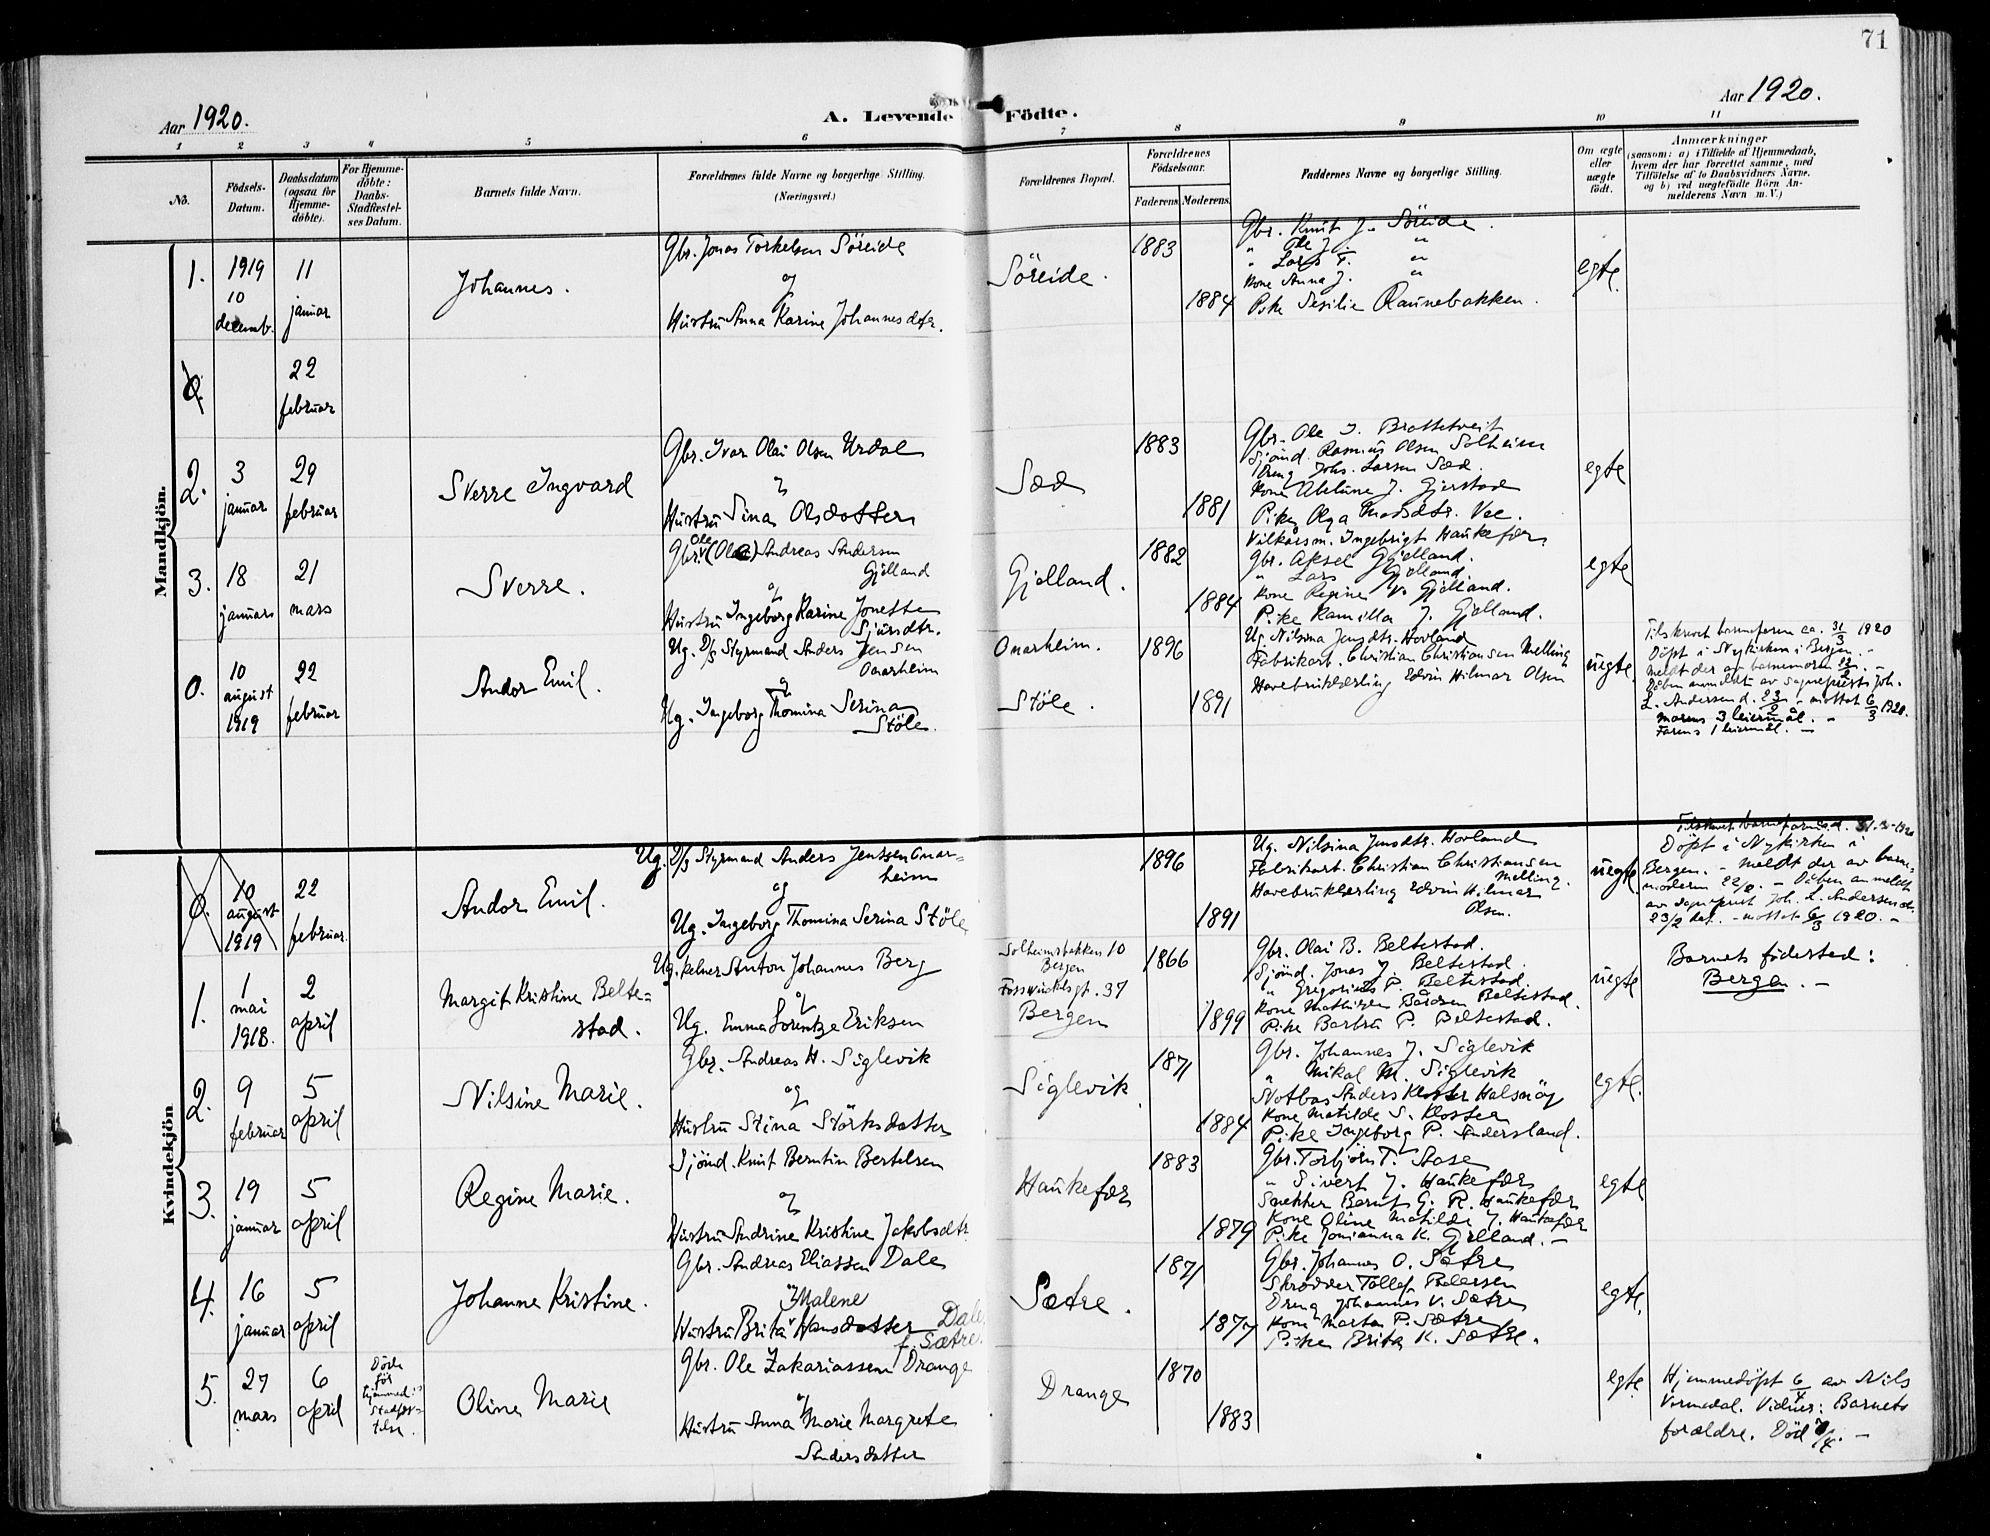 71
Aar 1920.
A. Levende Födte.
Aar 1920.
1 2 3 4 5 6 7 8 9 10 11
No.
Födsels-Datum.
Daabsdatum (ogsaa for Hjemmedöbte).
For Hjemmedöbte: Daabs-Stadfæstelses Datum.
Barnets fulde Navn.
Forældrenes fulde Navne og borgerlige Stilling.
(Næringsvei.)
Forældrenes Bopæl.
Forældrenes Födselsaar.
Faderens.
Moderens.
Faddernes Navne og borgerlige Stilling.
Om ægte eller uægte födt.
Anmærkninger
(saasom: a) i Tilfælde af Hjemmedaab, hvem der har forrettet samme, med Tilföielse af to Daabsvidners Navne, og b) ved uægtefödte Börn Anmelderens Navn m. V.)
Mandkjön.
1.
1919
10
decemb.
11
januar
Johannes.
Gbr. Jonas Torkelsen Söreide
og
Hustru Anna Karine Johannesdtr.
Söreide.
1883
1884
Gbr. Knut J. Söreide.
" Ole J. "
" Lars T. "
Kone Anna J. "
Pike Sesilie Raunebakken.
egte.
22
februar
2.
3
januar
29
februar
Sverre Ingvard
Gbr. Ivar Olai Olsen Urdal
og
Hustru Sina Olsdotter
Sæd
1883
1881
Gbr. Ole J. Brattetveit
Sjömd. Rasmus Olsen Solheim
Dreng Johs. Larsen Sæd.
Kone Abeline J. Gjerstad
Pike Olga Madsdtr. Vee.
egte
3.
18
januar
21
mars
Sverre.
Ole
Gbr. (Ola) Andreas Andersen
Gjelland
og
Hustru Ingeborg Karine Jonette
Sjursdtr.
Gjelland.
1882
1884
Vilkårsm. Ingebrigt Haukefær
Gbr. Aksel Gjelland.
" Lars Gjelland.
Kone Regine Gjelland.
Pike Kamilla J. Gjelland.
egte
0.
10
august
1919
22
februar
Andor Emil.
Ug. D/S Styrmand Anders Jensen
Onarheim
og
Ug. Ingeborg Thomina Serina
Stöle.
Onarheim.
Stöle.
1896
1891
Ug. Nilsina Jensdtr. Hovland
Fabrikarb. Christian Christiansen Melling
Havebruklærling Edvin Hilmar Olsen
uegte
Tilskrevet barnefaren ca. 31/3 1920
Döpt i Nykirken i Bergen. -
Meldt der av barnemoren 22/2. -
Dåben anmeldt av sogneprest Joh.
L. Andersen d. 23/2 - mottat 6/3 1920.
Morens 3 leiermål. -
Farens 1 leiermål. -
Kvindekjön
0.
10
august
1919
22
februar
Andor Emil.
Ug. D/S Styrmand Anders Jenssen Onar-
heim
og
Ug. Ingeborg Thomina Serina Stöle
1896
1891
Ug. Nilsina Jensdtr. Hovland
Fabrikarb. Christian Christiansen
Melling.
Havebruklærling Edvin Hilmar
Olsen.
uegte
Tilskrevet barnefaren d. 31.3-1920
Döpt i Nykirken i
Bergen. - Meldt der av barne-
moderen 22/2. - Dåben anmeldt
av sogneprest Joh. L. Andersen d.
23/2 - mottat 6/3 1920. -
1.
1
mai
1918.
2
april
Margit Kristine Belte-
stad.
Ug. kelner Anton Johannes Berg
og
Ug. Emma Lorentze Eriksen
Solheimsbakken 10
Bergen
Fosswinckelsgt. 37
Bergen
1866
1899
Gbr. Olai B. Beltestad.
Sjömd. Jonas J. Beltestad.
" Gregorius P. Beltestad.
Kone Mathilde Bårdsen Beltestad.
Pike Barbra P. Beltestad.
uegte
Barnets födested:
Bergen. -
2.
9
februar
5
april
Nilsine Marie.
Gbr. Andreas H. Siglevik
og
Hustru Stina Störksdatter
Siglevik
1871
1884
Gbr. Johannes J. Siglevik
" Mikal M. Siglevik
Notbas Anders Kloster Halsnöy
Kone Matilde S. Kloster
Pike Ingeborg P. Sundersland.
egte.
3.
19
januar
5
april
Regine Marie.
Sjömd. Knut Berntin Bertelsen
og
Hustru Andrine Kristine Jakobsdtr.
Haukefær
1883
1879
Gbr. Torbjörn T. Stase
" Sivert J. Haukefær
Snekker Bernt G. R. Haukefær
Kone Oline Matilde J. Haukefær
Pike Jonianna K. Gjelland. -
egte
4.
16
januar
5
april
Johanne Kristine.
Gbr. Andreas Eliassen Dale
og
Malene
Hustru Brita Hansdatter Dale
f. Sætre.
Sætre.
1871
1877
Gbr. Johannes O. Sætre
Skrædder Tollef Pedersen
Dreng Johannes V. Sætre
Kone Marta P. Sætre
Pike Brita K. Sætre.
egte.
5.
27
mars
6
april
Döde
för
hjemmed:s
stadfæs-
telse.
Oline Marie
Gbr. Ole Zakariassen Drange
og
Hustru Anna Marie Margrete
Andersdatter
Drange
1870
1883
egte
Hjemmedöpt 6/4 av Nils
Vermedal. Vidner: Barnets
forældre. Död /4. -